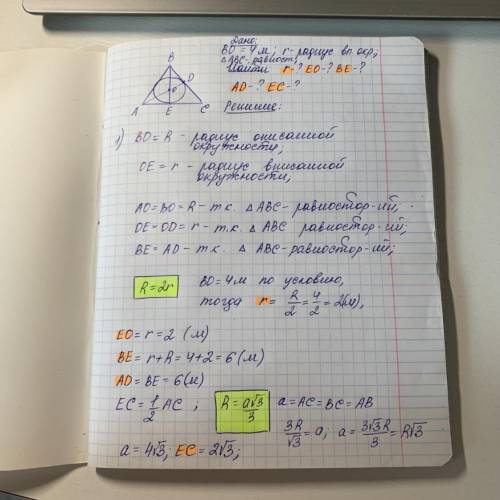 Дано:
BO = 4 м; r - радиус вп. окр;
△ABC - равност;
Найти r-? EO-? BE-?
AD-? EC-?
Решение:
B
D
O
A E C
1) BO = R - радиус описанной
окружности;
OE = r - радиус вписанной
окружности;
AO = BO = R - т.к. △ ABC - равностор-ий;
OE = OD = r - т.к. △ ABC равностор-ий;
BE = AD - т.к. △ ABC - равностор-ий;
R = 2r
BO = 4м по условию,
тогда r = R/2 = 4/2 = 2(м),
EO = r = 2 (м)
BE = r + R = 4 + 2 = 6 (м)
AD = BE = 6 (м)
EC = 1/2 AC ; R = a√3/3 a = AC = BC = AB
3R/√3 = a; a = 3√3R/3 = R√3
a = 4√3; EC = 2√3;